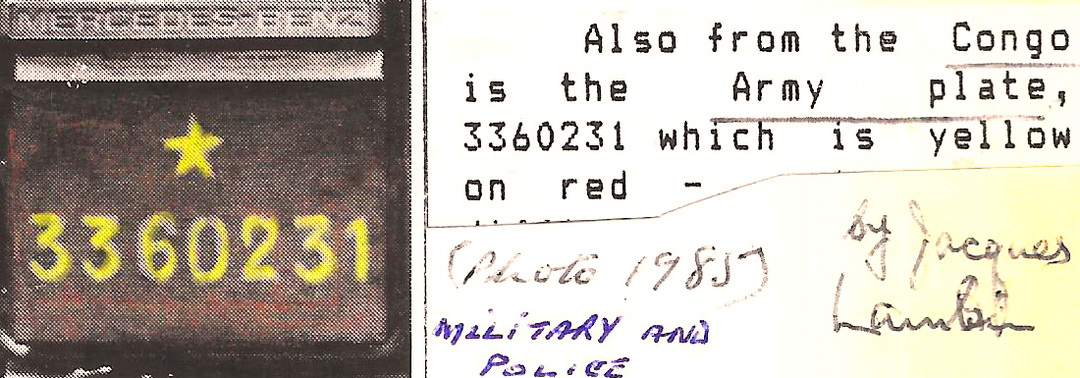 MERCEDES-BENZ
3360231
Also from the Congo
is the Army plate,
3360231 which is yellow
on red -
(Photo 1985)
by Jacques
MILITARY AND
POLICE